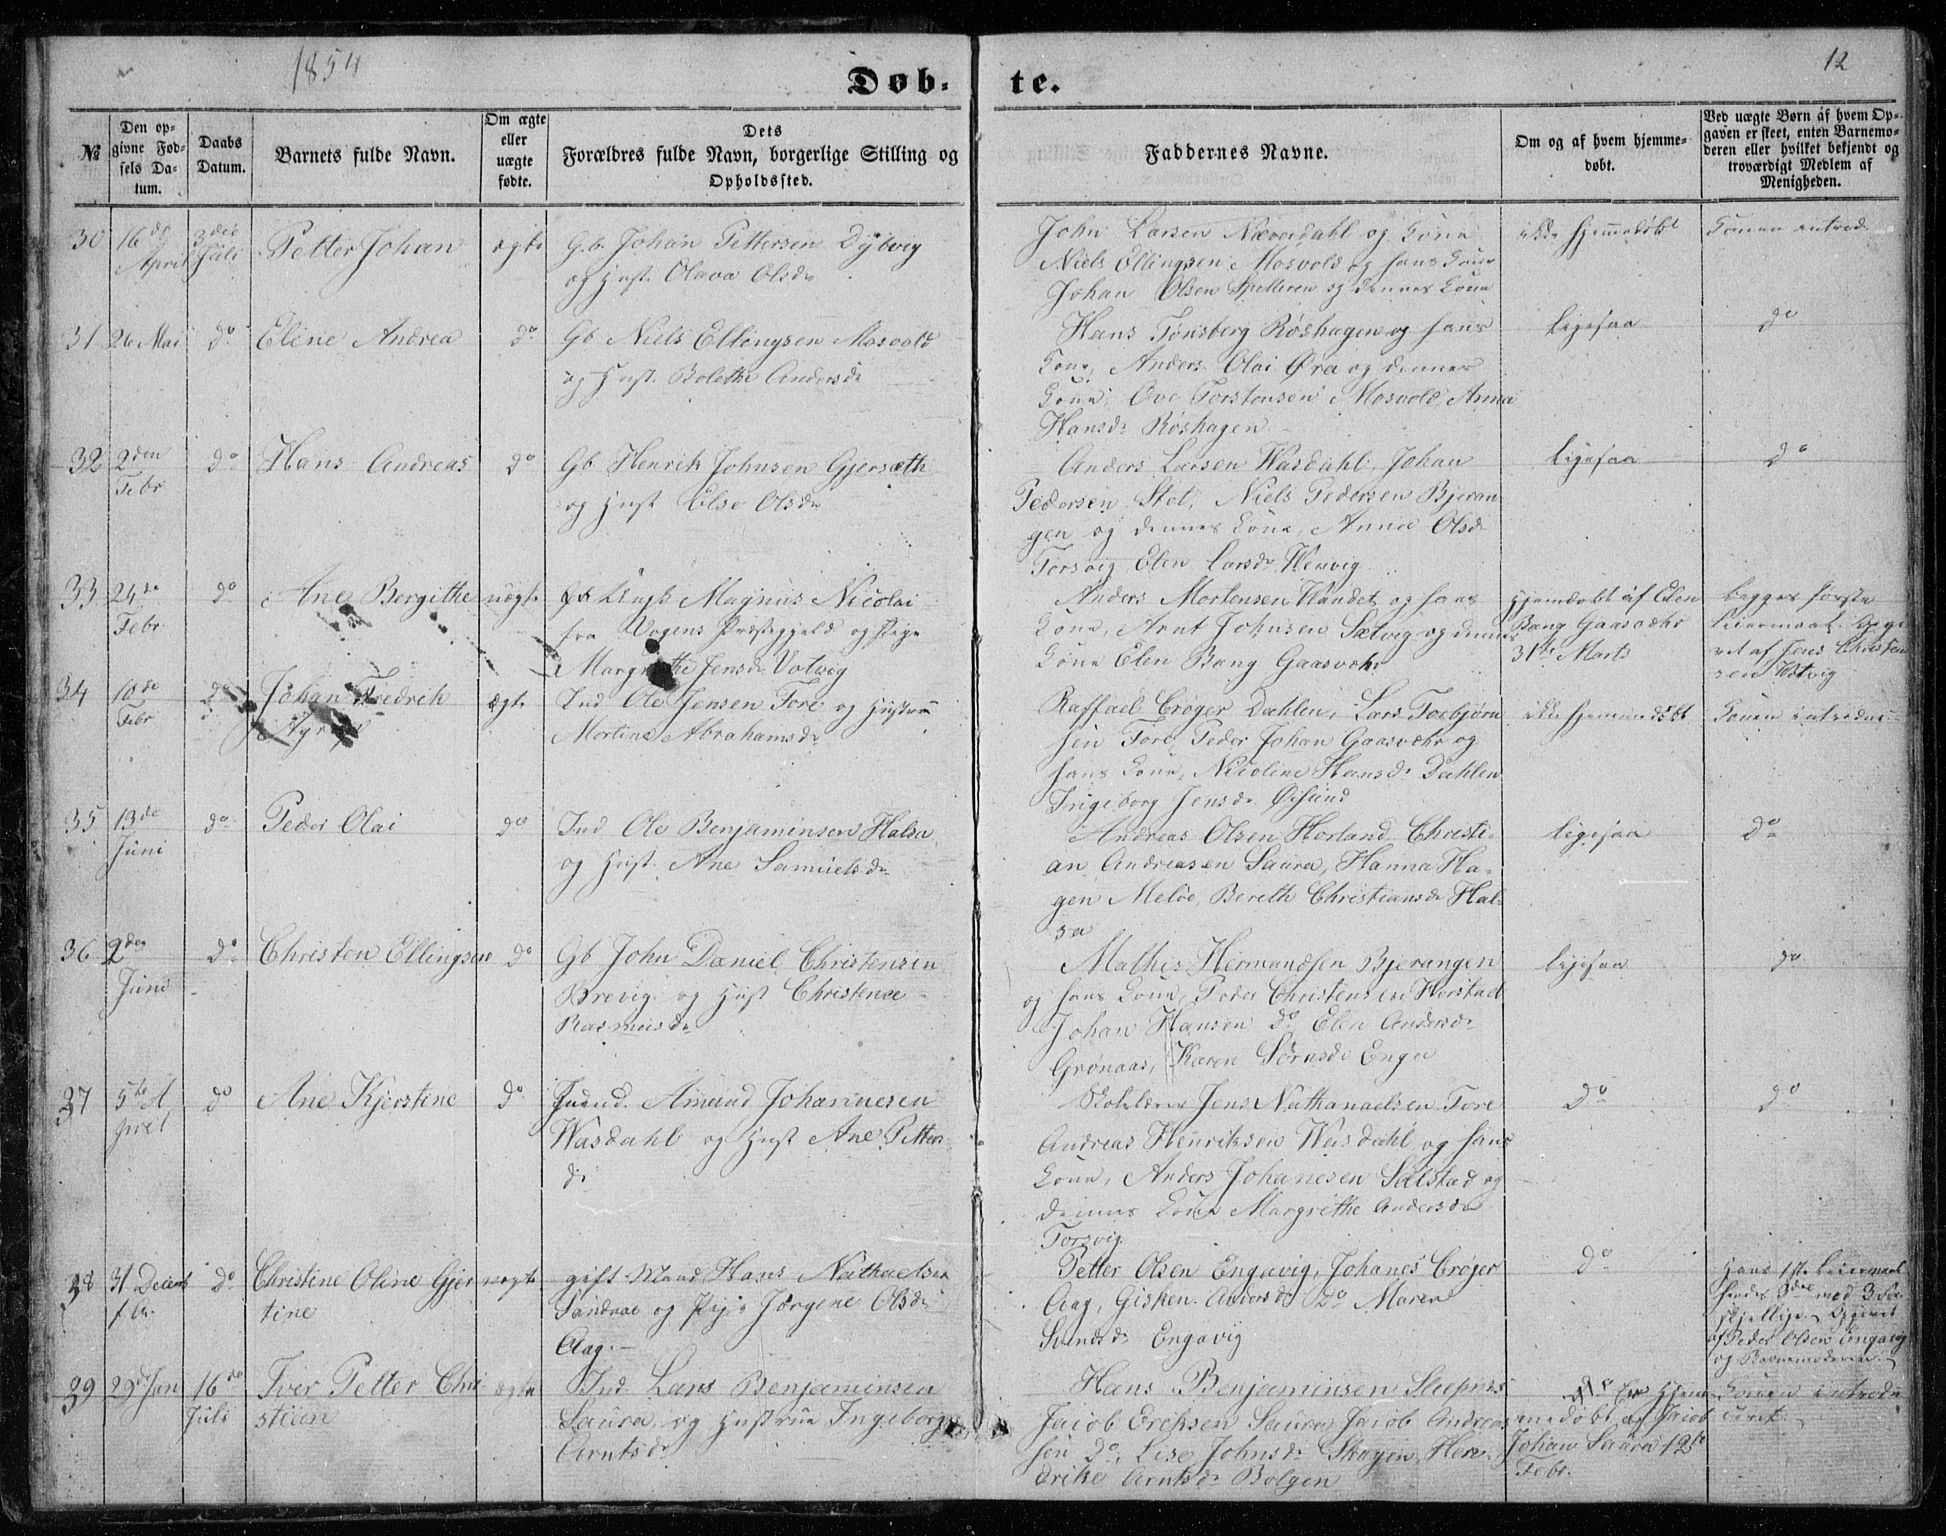 1854
12
Døb-te.
№
Den opgivne Fødsels Datum.
Daabs Datum.
Barnets fulde Navn.
Om ægte eller uægte fødte.
Dets Forældres fulde Navn, borgerlige Stilling og Opholdssted.
Faddernes Navne.
Om og af hvem hjemmedøbt.
Ved uægte Børn af hvem Opgaven er skeet, enten Barnemoderen eller hvilket bekjendt og troværdigt Medlem af Menigheden.
30 16de April 3die Juli Petter Johan ægte Gb. Johan Pettersen Dybvig
og Hust. Olava Olsdr
John Larsen Næverdahl og Kone
Niels Ellingsen Mosvold og hans Kone
Johan Olsen Spilleren og dennes Kone
ikke hjemmedøbt
Konen introd.
31 26 Mai do Eline Andrea do Gb Niels Ellingsen Mosvold
og Hust. Bolethe Andersdr
Hans Tønsberg Røshagen og hans
Kone, Anders Olai Øra og dennes
Kone, Ove Torstensen Mosvold, Anna
Hansdr Røshagen
ligesaa
do
32 2den Febr do Hans Andreas do Gb Henrik Johnsen Gjersæth
og Hust Else Olsdr
Anders Larsen Wasdahl, Johan
Pedersen Stol, Niels Pedersen Bjeran-
gen og dennes Kone, Anne Olsdr
Torsvig Elen Larsdr Henvig
ligesaa
do
33 24de Febr do Ane Bergithe uægte Magnus Nicolai
fra Vogens Præstegjeld og Pige
Margrethe Jensdr Votvig
Anders Mortensen Vandet og hans
Kone, Arnt Johnsen Sætvig og dennes
Kone Elen Bang Gaasvær
Hjemdøbt af Elen
Bang Gaasvær
31te Marts
begges første
Leiermaal. Opgi
vet af Jens Christen
sen Votvig
34 10de Febr do Johan Fredrik
ægte Ind Ole Jensen Fore og Hustrue
Mortine Abrahamsdr
Raffael Crøger Dahlen, Lars Torbjørn
sen Fore, Peder Johan Gaasvær og
hans Kone, Nicoline Hansdr Dahlen
Ingeborg Jensdr Øesund
ikke hjemmedøbt
Konen introduc-
35 13de Juni do Peder Olai do Ind Ole Benjaminsen Halsa
og Hust. Ane Samuelsdr
Andreas Olsen Horland Christi-
an Andreasen Saura, Hanna Ha-
gen Meløe, Bereth Christiansdr Hal-
sa
ligesaa
do
36 2den Juni do Christen Ellingsen do Gb John Daniel Christensen
Brevig og Hust Christence
Rasmusdr
Mathis Hermandsen Bjerangen
og hans Kone, Peder Christensen Horstad
Johan Hansen do Elen Andersdr
Grønaas, Karen Sørnsdr Enga
ligesaa
do
37 5te A
pril do Ane Kjerstine do Inderst. Amund Johannesen
Wasdahl og Hust Ane Petters
dr
Skolelærer Jens Nathanaelsen Fore
Andreas Henriksen Wasdahl og hans
Kone, Anders Johanesen Selstad og
dennes Kone Margrethe Andersdr
Torsvig
do
do
38 31 Decem
f Aar do Christine Oline Gjer
tine uægte gift Mand Hans Nathaelsen
Sandvae og Pige Jørgene Olsdr
Aag.
Petter Olsen Engavig, Johanes Crøger
Aag, Gisken Andersdr do Maren
Svendsdr Engavig
do
Hans 1ste Leiermaal
hendes 3die med 3 for
skjellige Opgivet
af Peder Olsen Engavig
og Barnemoderen.
39 29de Jan 16de Juli Iver Petter Chri
stian ægte Ind. Lars Benjaminsen
Saura og Hustrue Ingeborg
Arntsdr
Hans Benjaminsen Sleepnes
Jacob Ericksen Saura, Jacob Andreas
sen do, Lise Johnsdr Skagen, Hen-
drike Arntsdr Bolgen
Er Hjem
medøbt af Jacob
Johan Saura 12te
Febr.
Konen introdu
ceret.